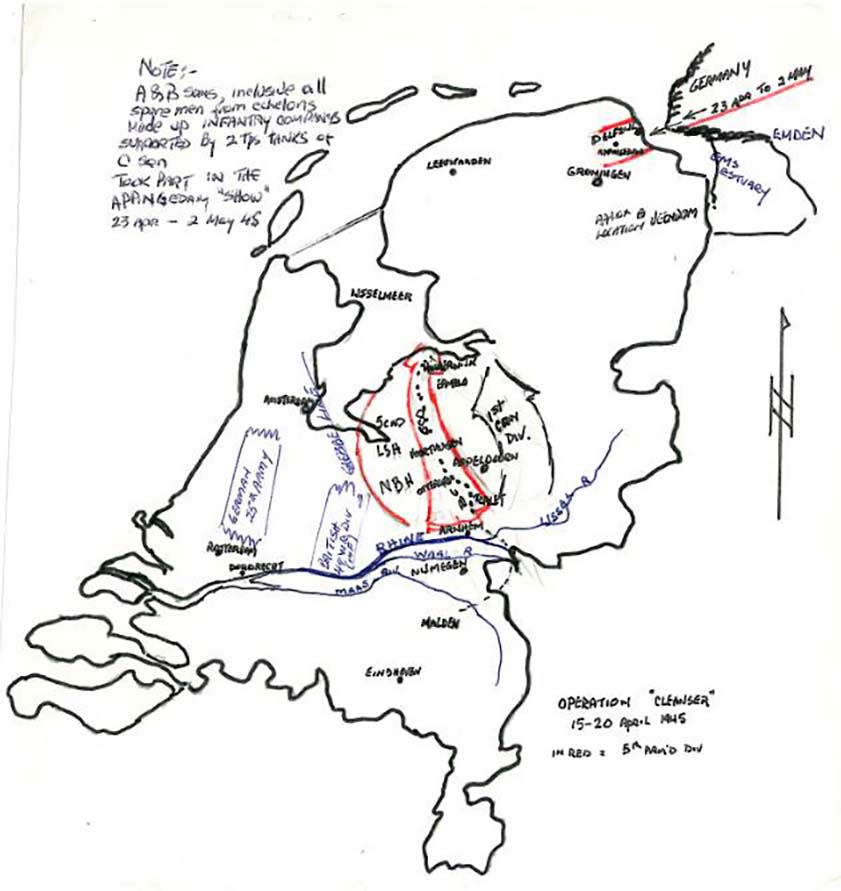 NOTE:-
A & B SQNS, inclusive all
spare men from echelons
Made up INFANTRY COMPANYS
SUPPORTED BY 2 TPS TANKS of
C SQN
TOOK PART IN THE
APPINGEDAM "SHOW"
23 APR - 2 MAY 45
GERMANY
23 APR TO 2 MAY
EMDEN
EMS
ESTUARY
DELFZIJL
LEEUWARDEN
GRONINGEN
LOCATION VEENDAM
IJSSELMEER
ERMELO
AMSTERDAM
GREBBE LINE
5 CAD
LSH
NBH
1ST
CDN
DIV.
VOORTHUIZEN
APELDOORN
OTTERLO
GERMAN
25TH ARMY
BRITISH
ARNHEM
IJSSEL R
ROTTERDAM
DORDRECHT
RHINE
WAAL R
MAAS RIV
NIJMEGEN
MALDEN
EINDHOVEN
OPERATION "CLEANSER"
15-20 APRIL 1945
IN RED = 5TH ARM'D DIV